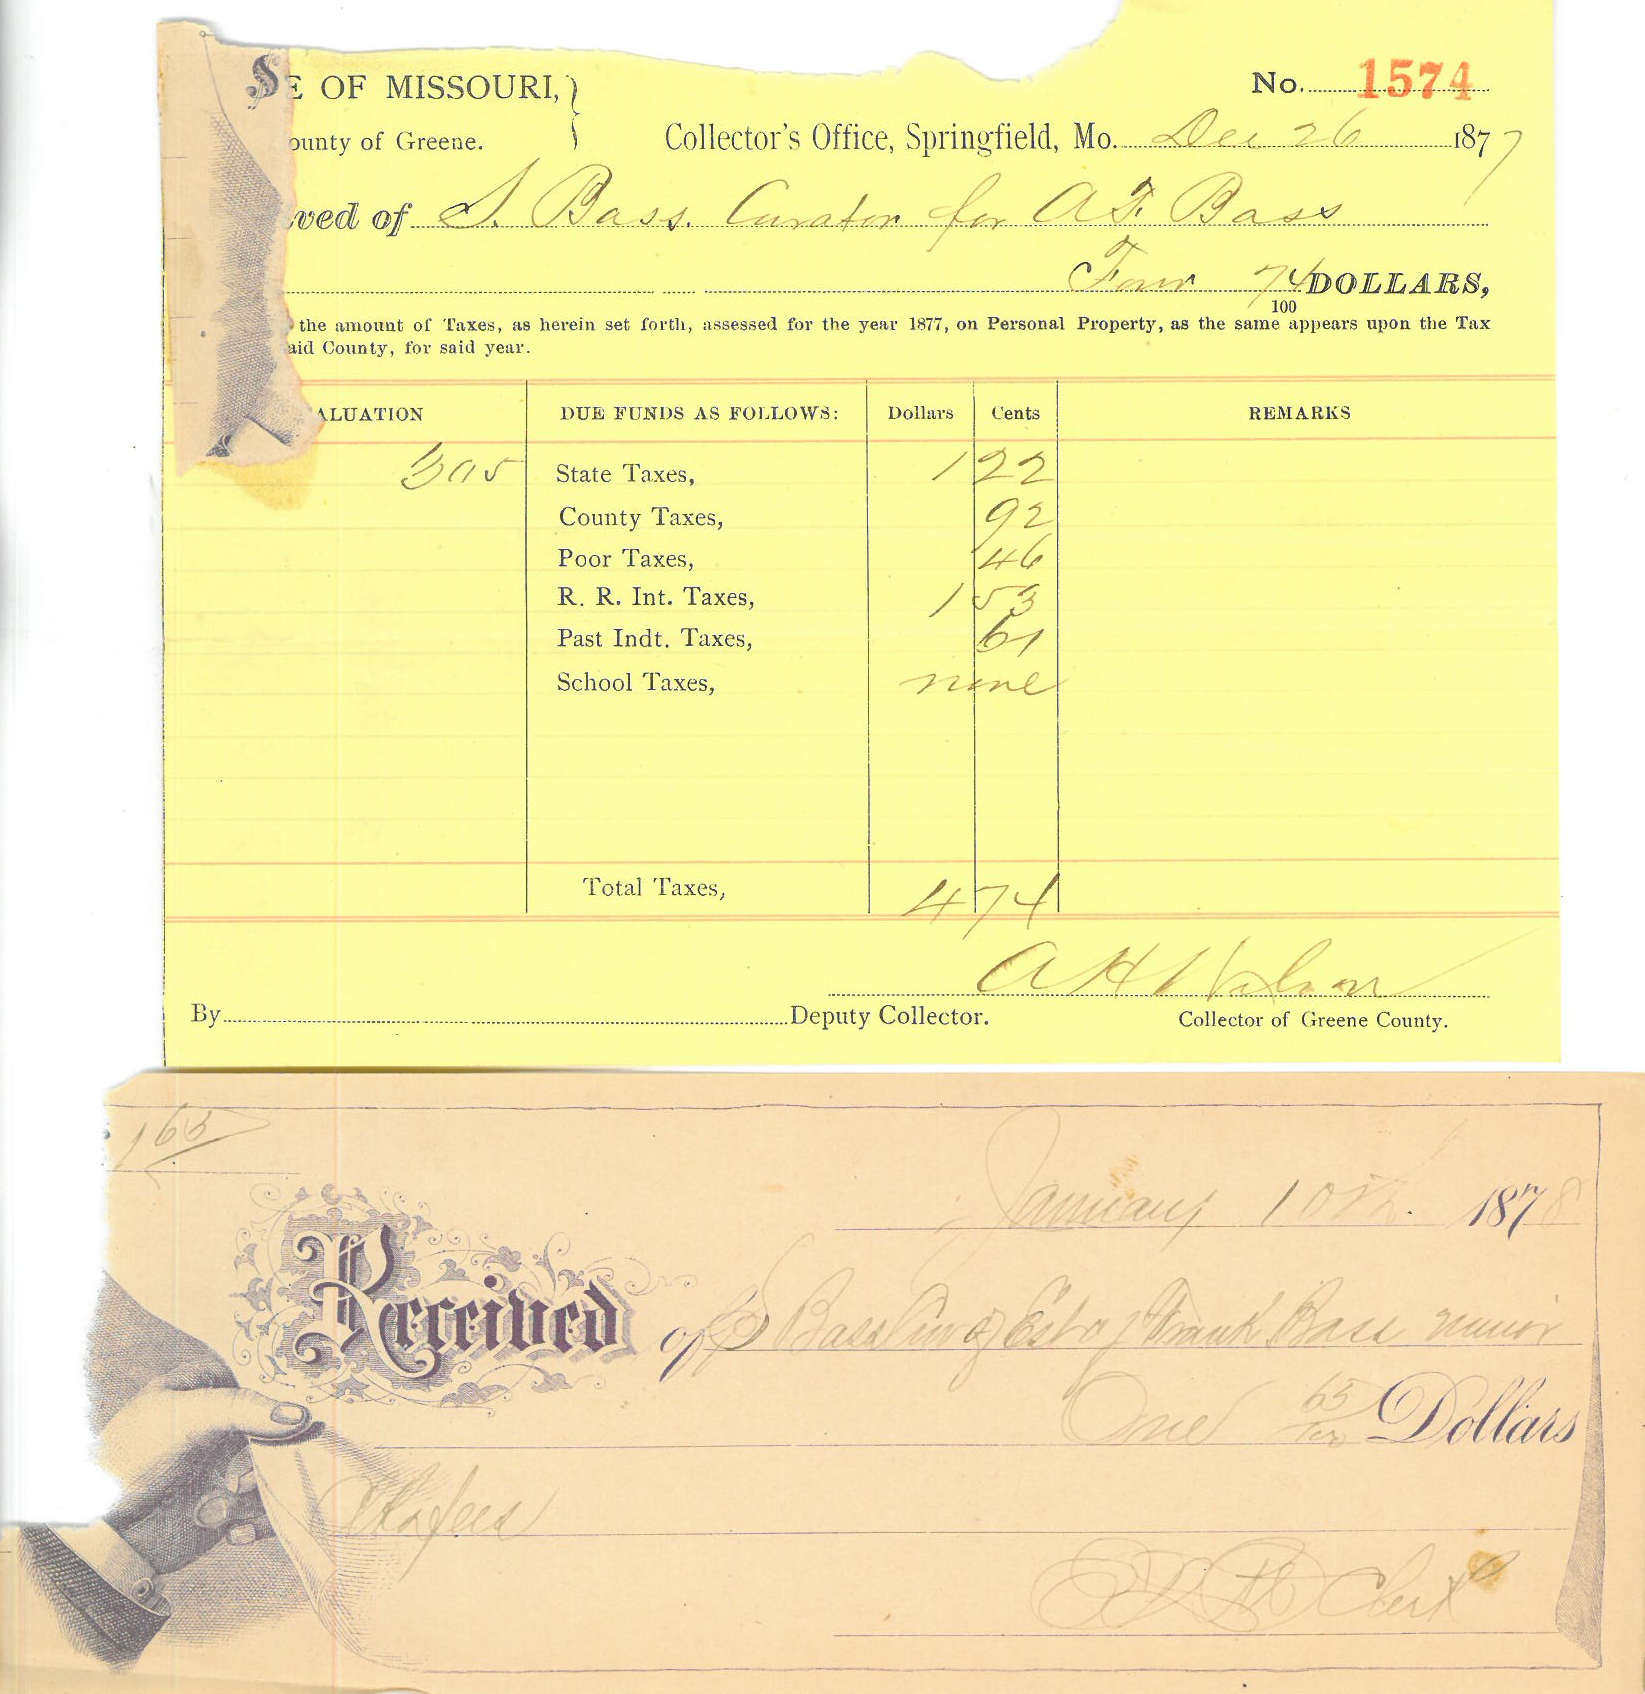 E OF MISSOURI,
No. 1574
ounty of Greene.
Collector's Office, Springfield, Mo. Dec 26 1877
ved of S. Bass. Curator for A F. Bass
Four 74/100 DOLLARS,
the amount of Taxes, as herein set forth, assessed for the year 1877, on Personal Property, as the same appears upon the Tax
aid County, for said year.
ALUATION DUE FUNDS AS FOLLOWS: Dollars Cents REMARKS
305 State Taxes, 1 22
County Taxes, 92
Poor Taxes, 46
R. R. Int. Taxes, 1 53
Past Indt. Taxes, 61
School Taxes, none
Total Taxes, 4 74
A H Wilson
By Deputy Collector. Collector of Greene County.
165
January 10th. 1878
Received of S Bass Cur of Est of Frank Bass minor
One 65/100 Dollars
Clk fees
Clerk